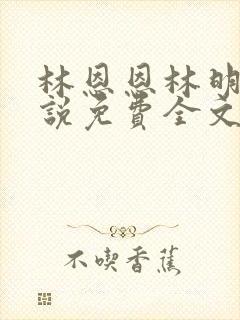 林恩恩林明
説免費全文
不喫香蕉